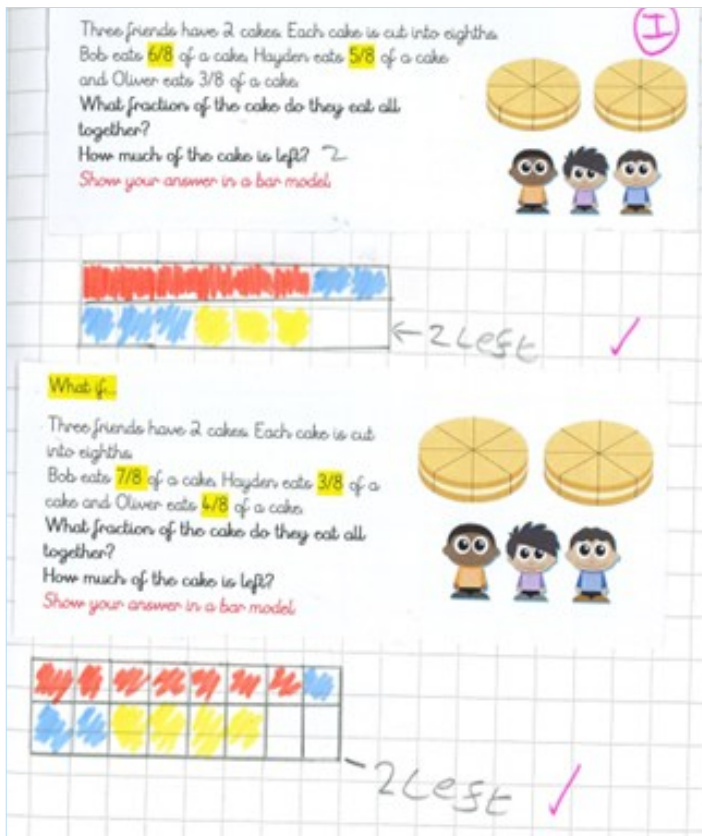 Three friends have 2 cakes. Each cake is cut into eighths.
I
Bob eats 6/8 of a cake, Hayden eats 5/8 of a cake
and Oliver eats 3/8 of a cake.
What fraction of the cake do they eat all
together?
How much of the cake is left? 2
Show your answer in a bar model.
←2 Left ✓
What if...
Three friends have 2 cakes. Each cake is cut
into eighths.
Bob eats 7/8 of a cake, Hayden eats 3/8 of a
cake and Oliver eats 4/8 of a cake.
What fraction of the cake do they eat all
together?
How much of the cake is left?
Show your answer in a bar model.
-2 Left ✓